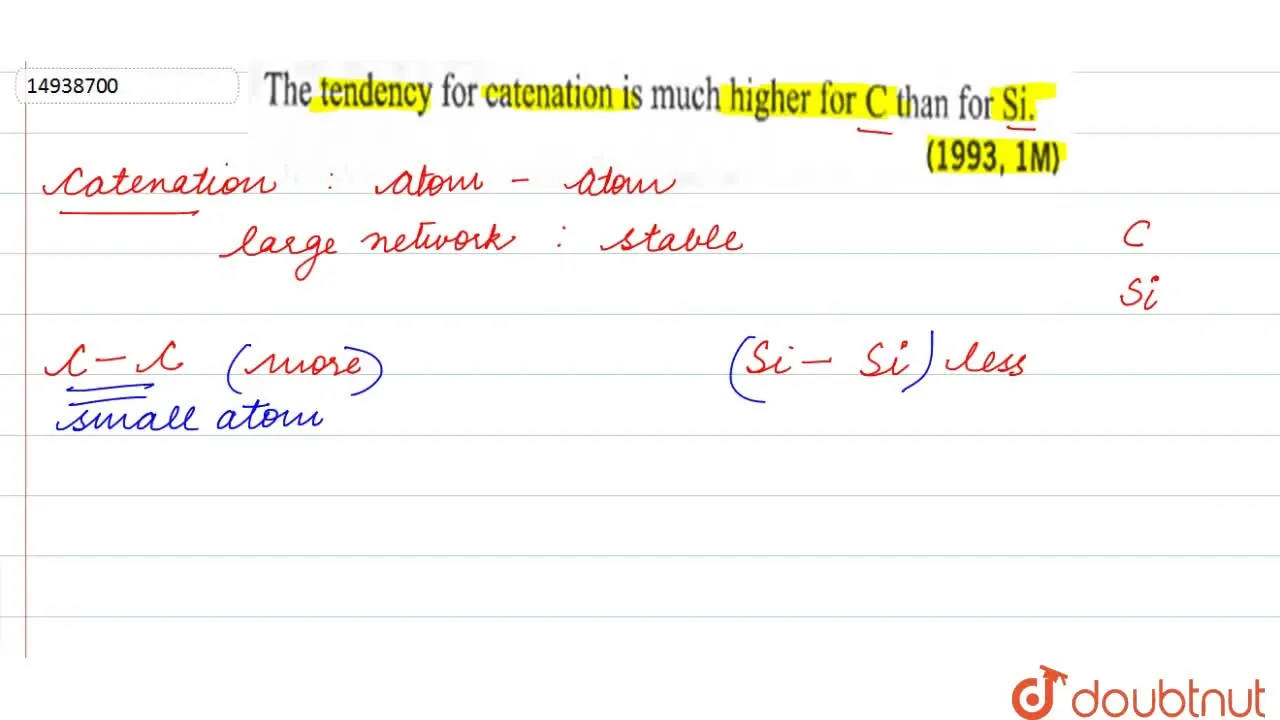 14938700
The tendency for catenation is much higher for C than for Si.
(1993, 1M)
Catenation : atom - atom
large network : stable
C
Si
C - C (more)
(Si - Si) less
small atom
doubtnut